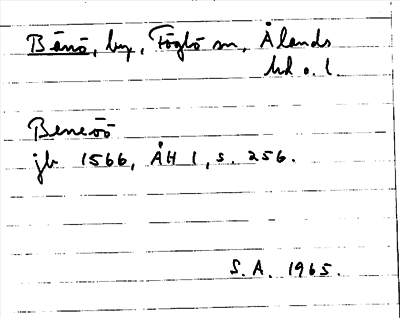 Bänö, by, Föglö sn, Ålands
hd o. l.
Beneöö
jb 1566, ÅH 1, s. 256.
S.A. 1965.